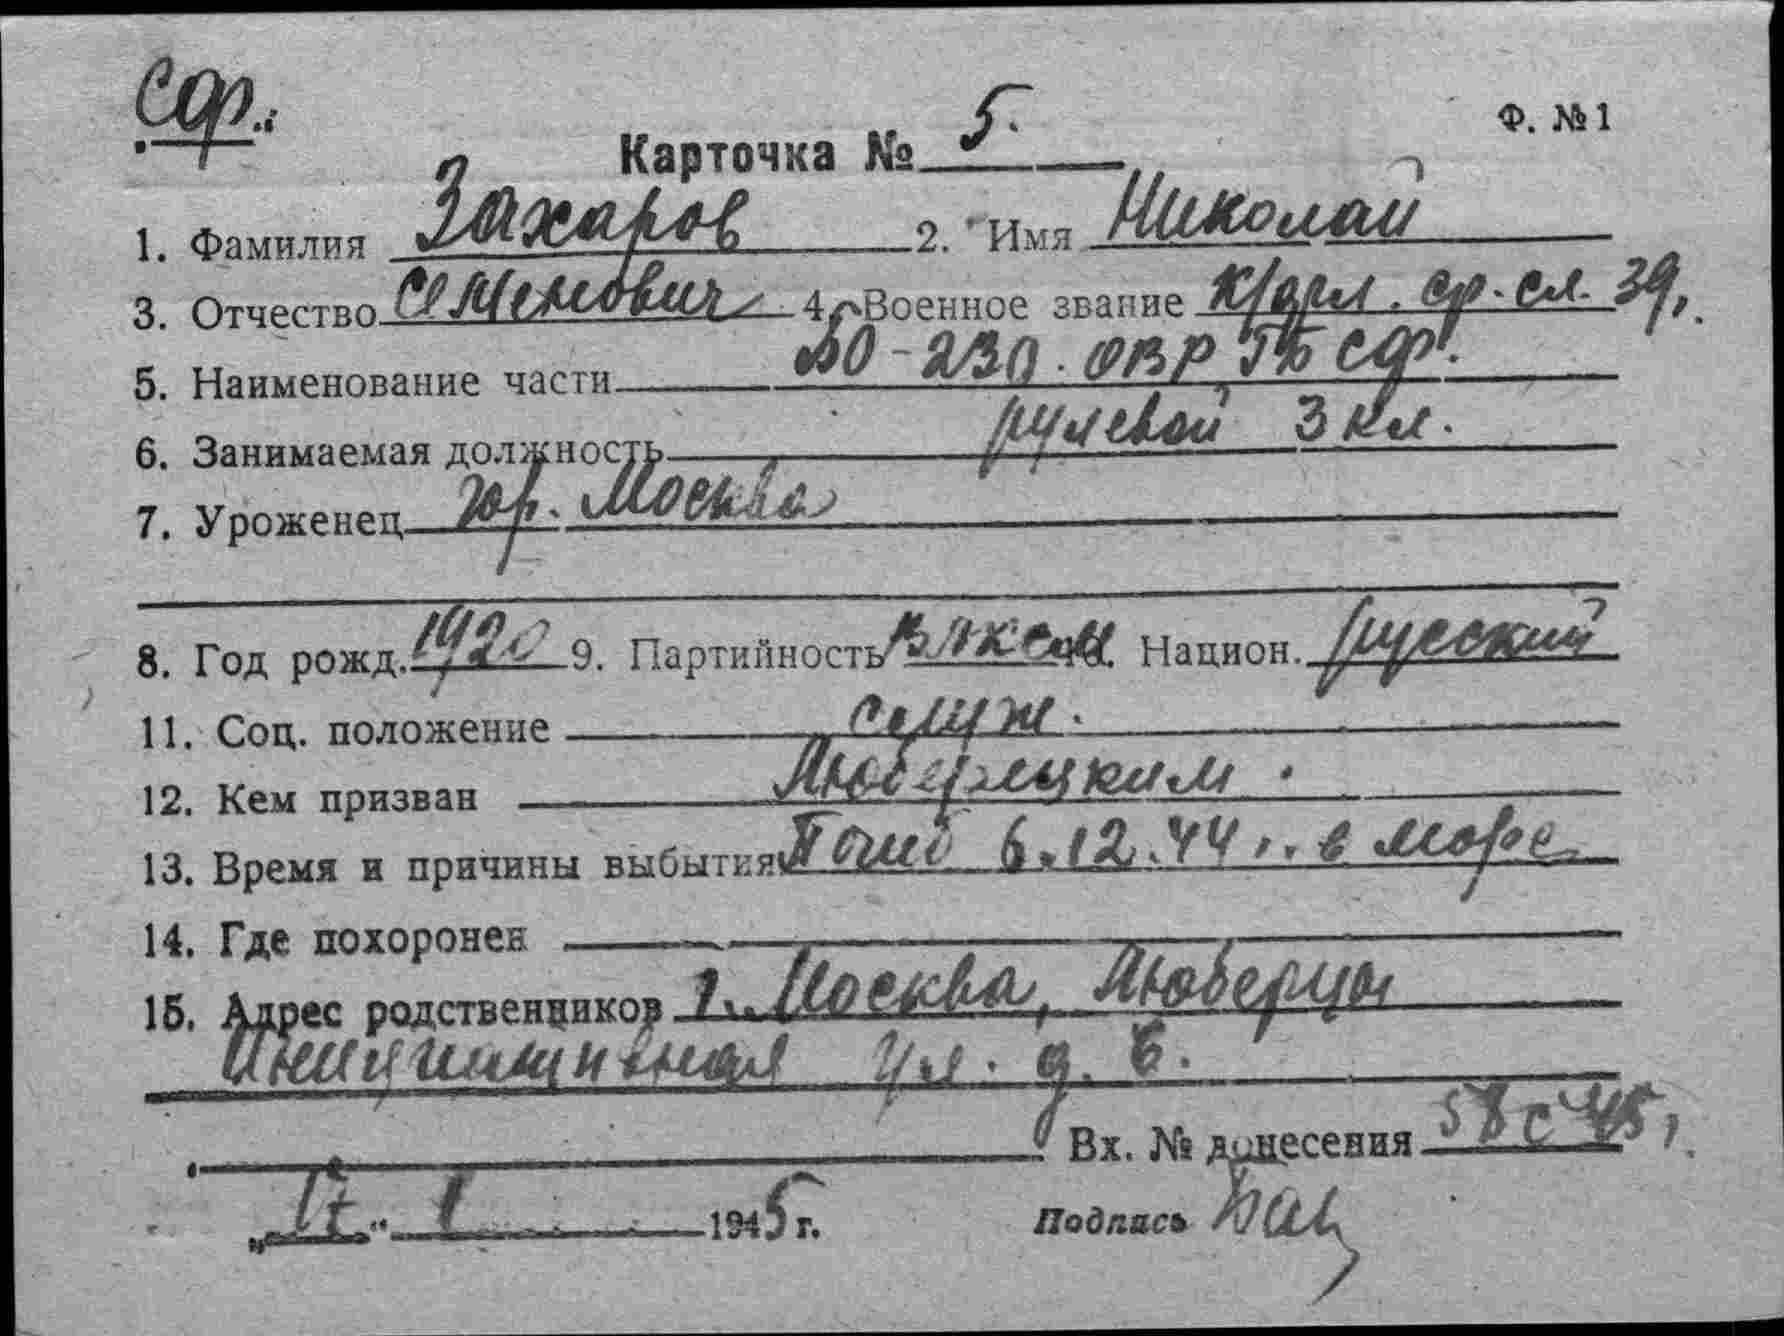 СФ.
Ф. № 1
Карточка № 5.
1. Фамилия Захаров 2. Имя Николай
3. Отчество Семенович 4. Военное звание к/фл. ср. сл. 39г.
5. Наименование части БО-230. ОВР ГБ СФ.
6. Занимаемая должность рулевой 3 кл.
7. Уроженец гор. Москва
8. Год рожд. 1920 9. Партийность ВЛКСМ 10. Национ. русский
11. Соц. положение служ.
12. Кем призван Люберецким.
13. Время и причины выбытия Погиб 6.12.44 г. в море
14. Где похоронен
15. Адрес родственников г. Москва, Люберцы
Инициативная ул. д. 6.
Вх. № донесения 58с 45г.
„17“ 1 1945 г. Подпись